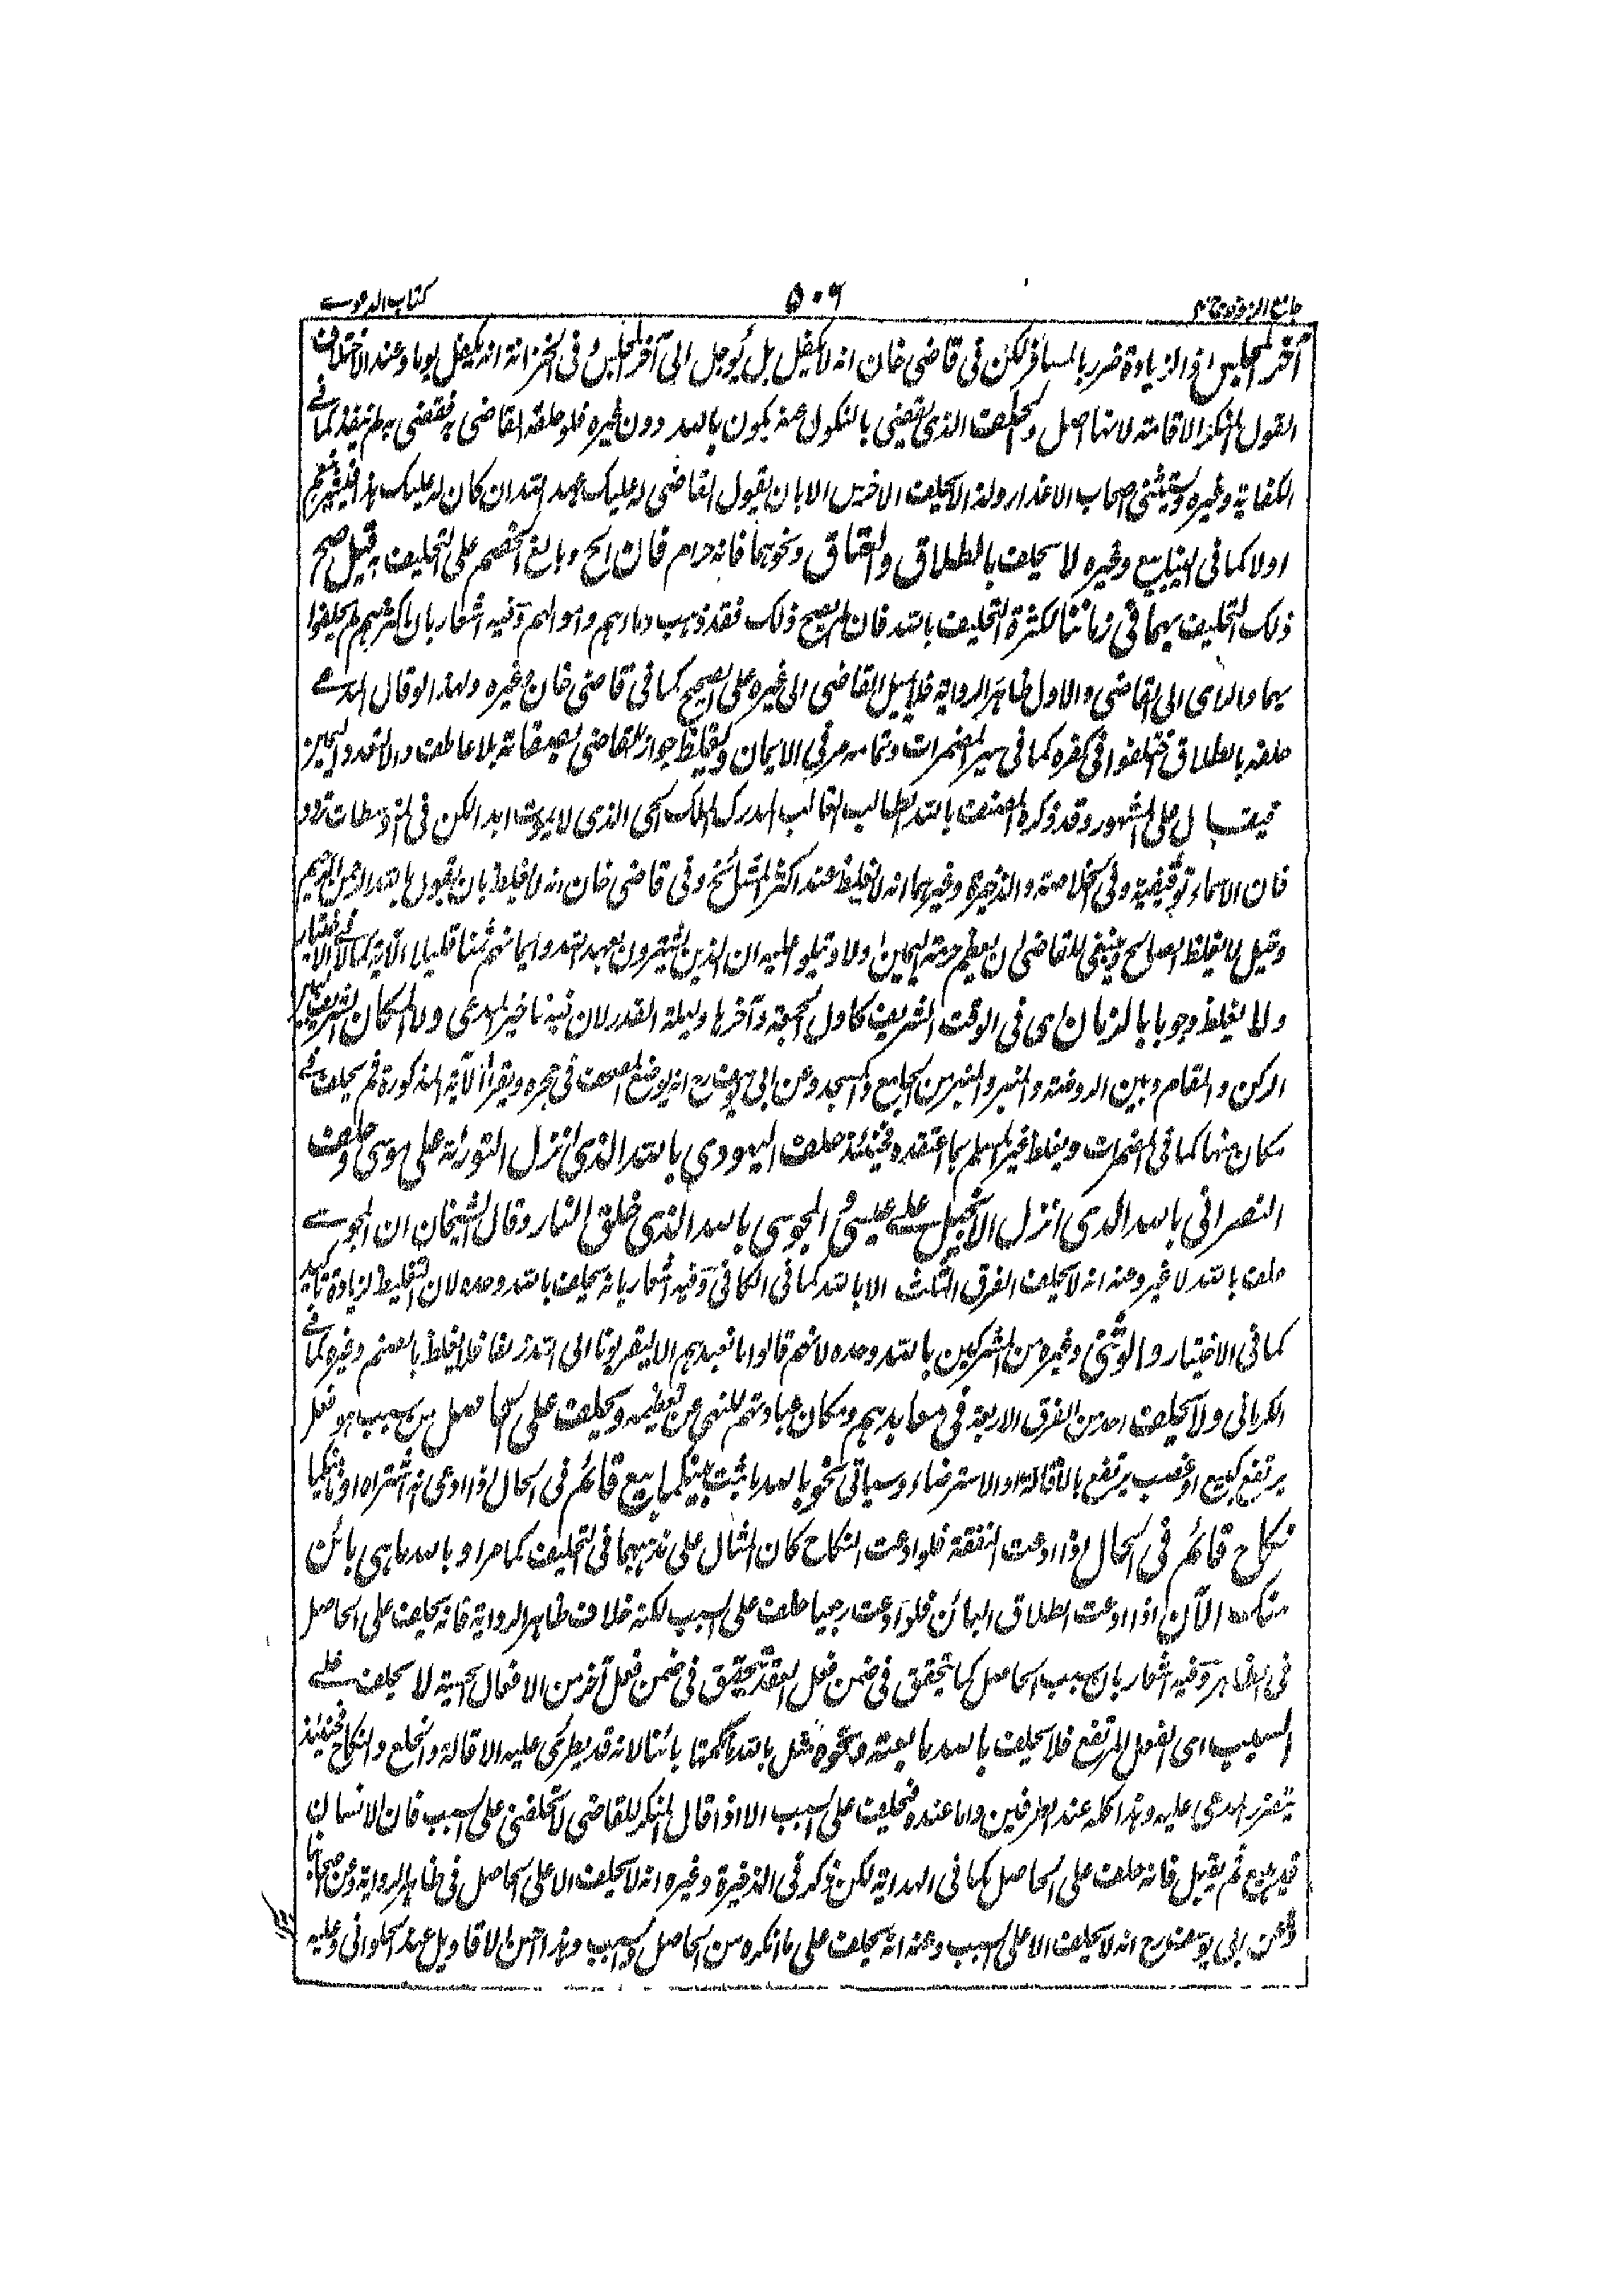 جامع الرموز ج ٢
٥٠٦
كتاب الدعوے
آخر المجلس اذ الزيادة ضرر بالمسافر لكن فى قاضى خان انه لا يكفل بل يؤجل الى آخر المجلس و فى الخزانة انه يكفل يوما وعند الاختلاف
القول لمنكر الاقامة لانها اصل و الحلف الذى يقضى بالنكول عنه يكون بالله دون غيره فلو حلفه القاضى به فقضى به لم ينفذ كما فے
الكفاية وغيره و يستثنى اصحاب الاعذار ولذا لا يحلف الاخرس الا بان يقول القاضى له عليك عهد الله ان كان له عليك هذا فيشير بنعم
او لا كما فى الينابيع وغيره لا يحلف بالطلاق و العتاق ونحوهما فانه حرام فان الح و بالغ الخصم على التحليف به قيل صح
ذلك التحليف بهما فى زماننا لكثرة التحليف بالله فان لم يصح ذلك فقد ذهب دمارهم و اموالهم وفيه اشعار بان اكثرهم لم يحلفوا
بهما والراى الى القاضى و الاول ظاهر الرواية فلا يميل القاضى الى غيره على الصحيح كما فى قاضى خان وغيره ولهذا لو قال المدعے
حلفه بالطلاق اختلفوا فى كفره كما فى سير المضمرات وتمامه مر فى الايمان و يغلظ جواز للقاضى بصفاته بلا عاطف
على المشهور وقد ذكره المصنف بالله الطالب الغالب المدرك الملك الحى الذى لا يموت ابدا لكن فى
فان الاسماء توقيفية وفى الخلاصة والذخيرة وغيرهما انه لا تغليظ عند اكثر المشايخ وفى قاضى خان انه لا يغلظ بان يقول بالله الرحمن الرحيم
وقيل لا يغلظ الصالح وينبغى للقاضى ان يعظم حرمة اليمين اولا ويتلو عليه ان الذين يشترون بعهد الله وايمانهم ثمنا قليلا الآية كما فے الاختيار
ولا يغلظ وجوبا بالزمان اى فى الوقت الشريف كاول الجمعة وآخرها وليلة القدر لان فيه تاخير المدعى ولا المكان الشريف
الركن و المقام وبين الروضة و المنبر و المنبر من الجامع و المسجد وعن ابى يوسف رح انه يوضع المصحف فى حجره ويقرأ الآية المذكورة ثم يحلف فے
مكان منها كما فى المضمرات ويغلظ غير المسلم بما اعتقده فحينئذ حلف اليهودى بالله الذى انزل التورية على موسى و حلف
النصرانى بالله الذى انزل الانجيل علے عيسى و المجوسى بالله الذى خلق النار وقال الشيخان ان المجوسے
حلف بالله لا غير وعنه انه لا يحلف الفرق الثلث الا بالله كما فى الكافى وفيه اشعار بانه يحلف بالله وحده لان التغليظ لزيادة تاكيد
كما فى الاختيار و الوثنى وغيره من المشركين بالله وحده لانهم قالوا ما نعبدهم الا ليقربونا الى الله زلفا فلا يغلظ بالصنم وغيره كما فے
الكرمانى ولا يحلف احد من الفرق الاربعة فى معابدهم ومكان عبادتهم للنهى عن تعظيمه ويحلف على الحاصل من سبب هو فعل
يرتفع كبيع او غصب يرتفع بالاقالة و الاسترضاء وسياتى نحو بالله ما ثبت بينكما بيع قائم فى الحال اذا ادعى انه اشتراه او ما بينكما
نكاح قائم فى الحال اذا ادعت النفقة فلو ادعت النكاح كان المثال على مذهبهما فى التحليف كما مر او بالله ما هى بائن
منك الآن اذا ادعت الطلاق البائن فلو ادعت رجعيا حلف على السبب لكنه خلاف ظاهر الرواية فانه يحلف على الحاصل
فى الظاهر وفيه اشعار بان سبب الحاصل كما يتحقق فى ضمن فعل العقد يتحقق فى ضمن فعل آخر من الافعال الحسية لا يحلف علے
السبب اى الفعل المرتفع فلا يحلف بالله ما بعته ونحوه مثل بالله ما نكحتها بائنا لانه قد يطرئ عليه الاقالة و الخلع و النكاح فحينئذ
يتضرر المدعى عليه وهذا كله عند الطرفين واما عنده فيحلف على السبب الا اذا قال المنكر للقاضى لا تحلفنى على السبب فان الانسان
قد يبيع ثم يقيل فانه حلف على الحاصل كما فى الهداية لكن ذكر فى الذخيرة وغيره انه لا يحلف الا على الحاصل فى ظاهر الرواية وعن اصحابنا
وعن ابى يوسف رح انه لا يحلف الا على السبب وعنه انه يحلف على ما انكره من الحاصل و السبب وهذا احسن الاقاويل عند الحلوانى وعليه